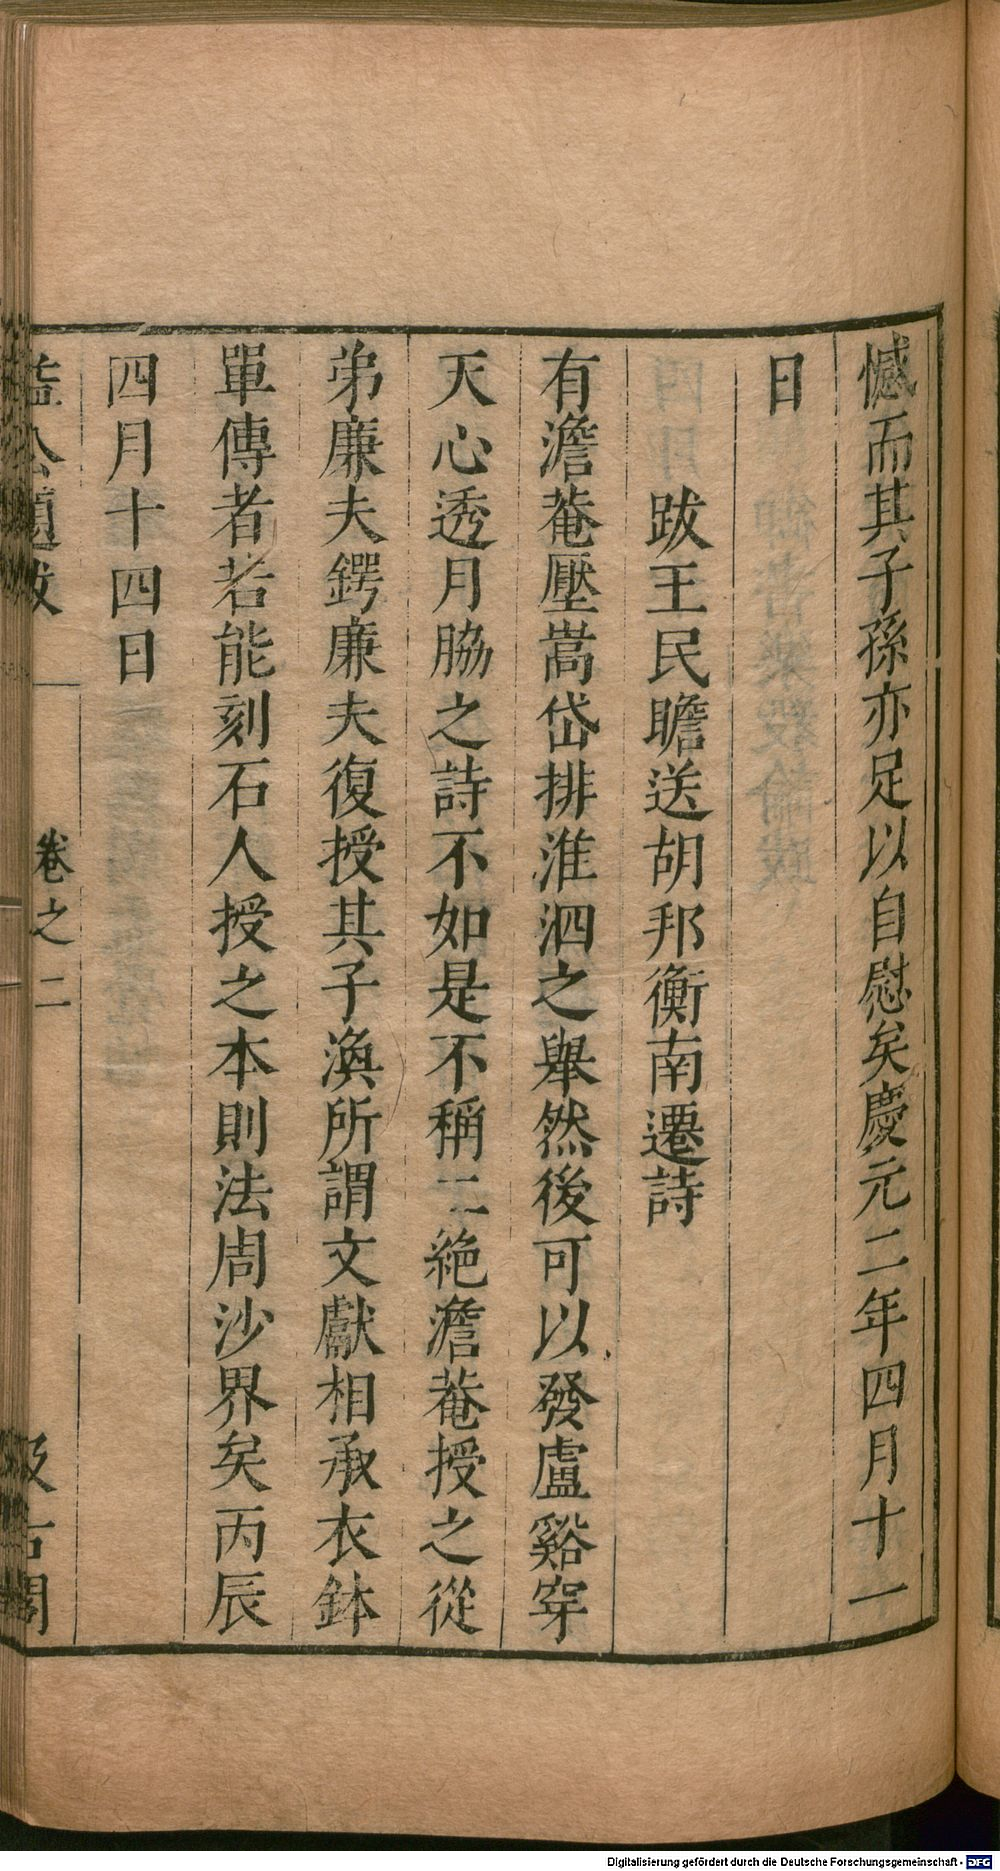 憾而其子孫亦足以自慰矣慶元二年四月十一
日
跋王民瞻送胡邦衡南遷詩
有澹菴壓嵩岱排淮泗之舉然後可以發盧谿穿
天心透月脇之詩不如是不稱二絶澹菴授之從
弟廉夫鍔廉夫復授其子渙所謂文獻相承衣鉢
單傳者若能刻石人授之本則法周沙界矣丙辰
四月十四日
益公題跋
卷之二
汲古閣
Digitalisierung gefördert durch die Deutsche Forschungsgemeinschaft - DFG